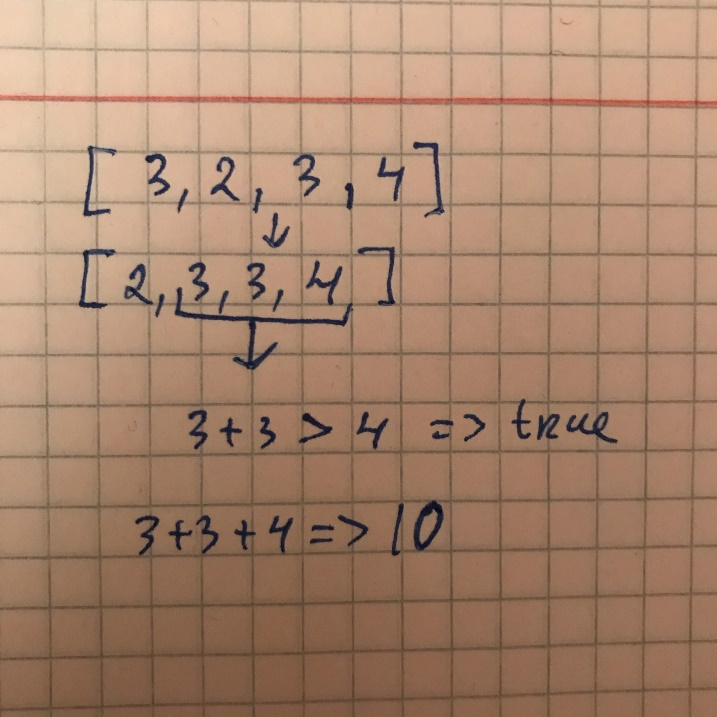 [ 3, 2, 3, 4 ]
↓
[ 2, 3, 3, 4, ]
↓
3 + 3 > 4 => true
3 + 3 + 4 => 10